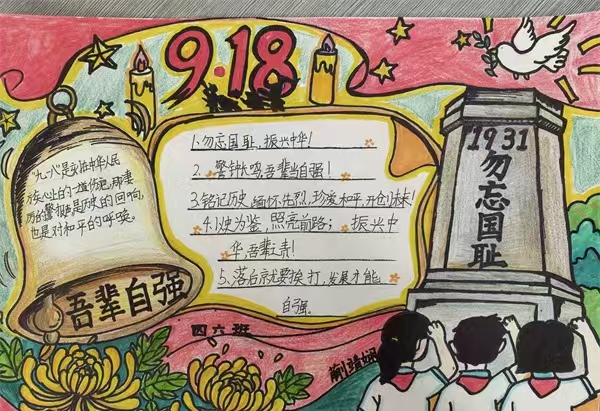 9·18
"九一八"是交给中华人民
族心上的一道伤疤,那凄
厉的警报声是历史的回响,
也是对和平的呼唤。
吾辈自强
1.勿忘国耻,振兴中华!
2、警钟长鸣,吾辈当自强!
3、铭记历史,缅怀先烈,珍爱和平,开创未来!
4.以史为鉴,照亮前路;振兴中
华,吾辈之责!
5、落后就要挨打,发展才能
自强。
四六班
1931
勿忘国耻